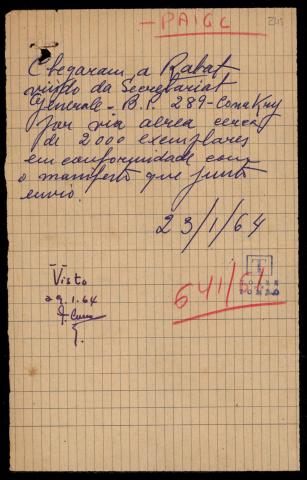 - PAIGC
Chegaram a Rabat
vindo da Secretariat
Generale - B.P. 289 - Conakry
por via aerea cerca
de 2000 exemplares
em conformidade com
o manifesto que junto
envio.
23/1/64
Visto
29.1.64
T
641/64